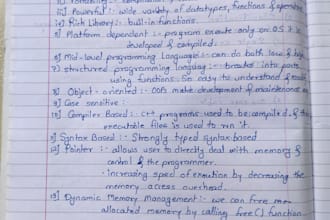 3] Powerful :- wide variety of datatypes, functions & operators
4] Rich Library :- built-in functions.
5] Platform dependent :- program execute only on OS it is
developed & compiled.
6] Mid-level programming Language :- can do both low & high
7] structured programming language :- breaked into parts
using functions. So easy to understand & modify
8] Object - oriented :- OOPs make development & maintenance easier
9] Case sensitive :-
10] Compiler Based :- C++ programs used to be compiled &
executable files is used to run it.
11] Syntax Based :- Strongly typed syntax based
12] Pointer :- allows user to directly deal with memory &
control the programmer.
- increasing speed of execution by decreasing the
memory access overhead.
13] Dynamic Memory Management :- we can free mem-
allocated memory by calling free() function.